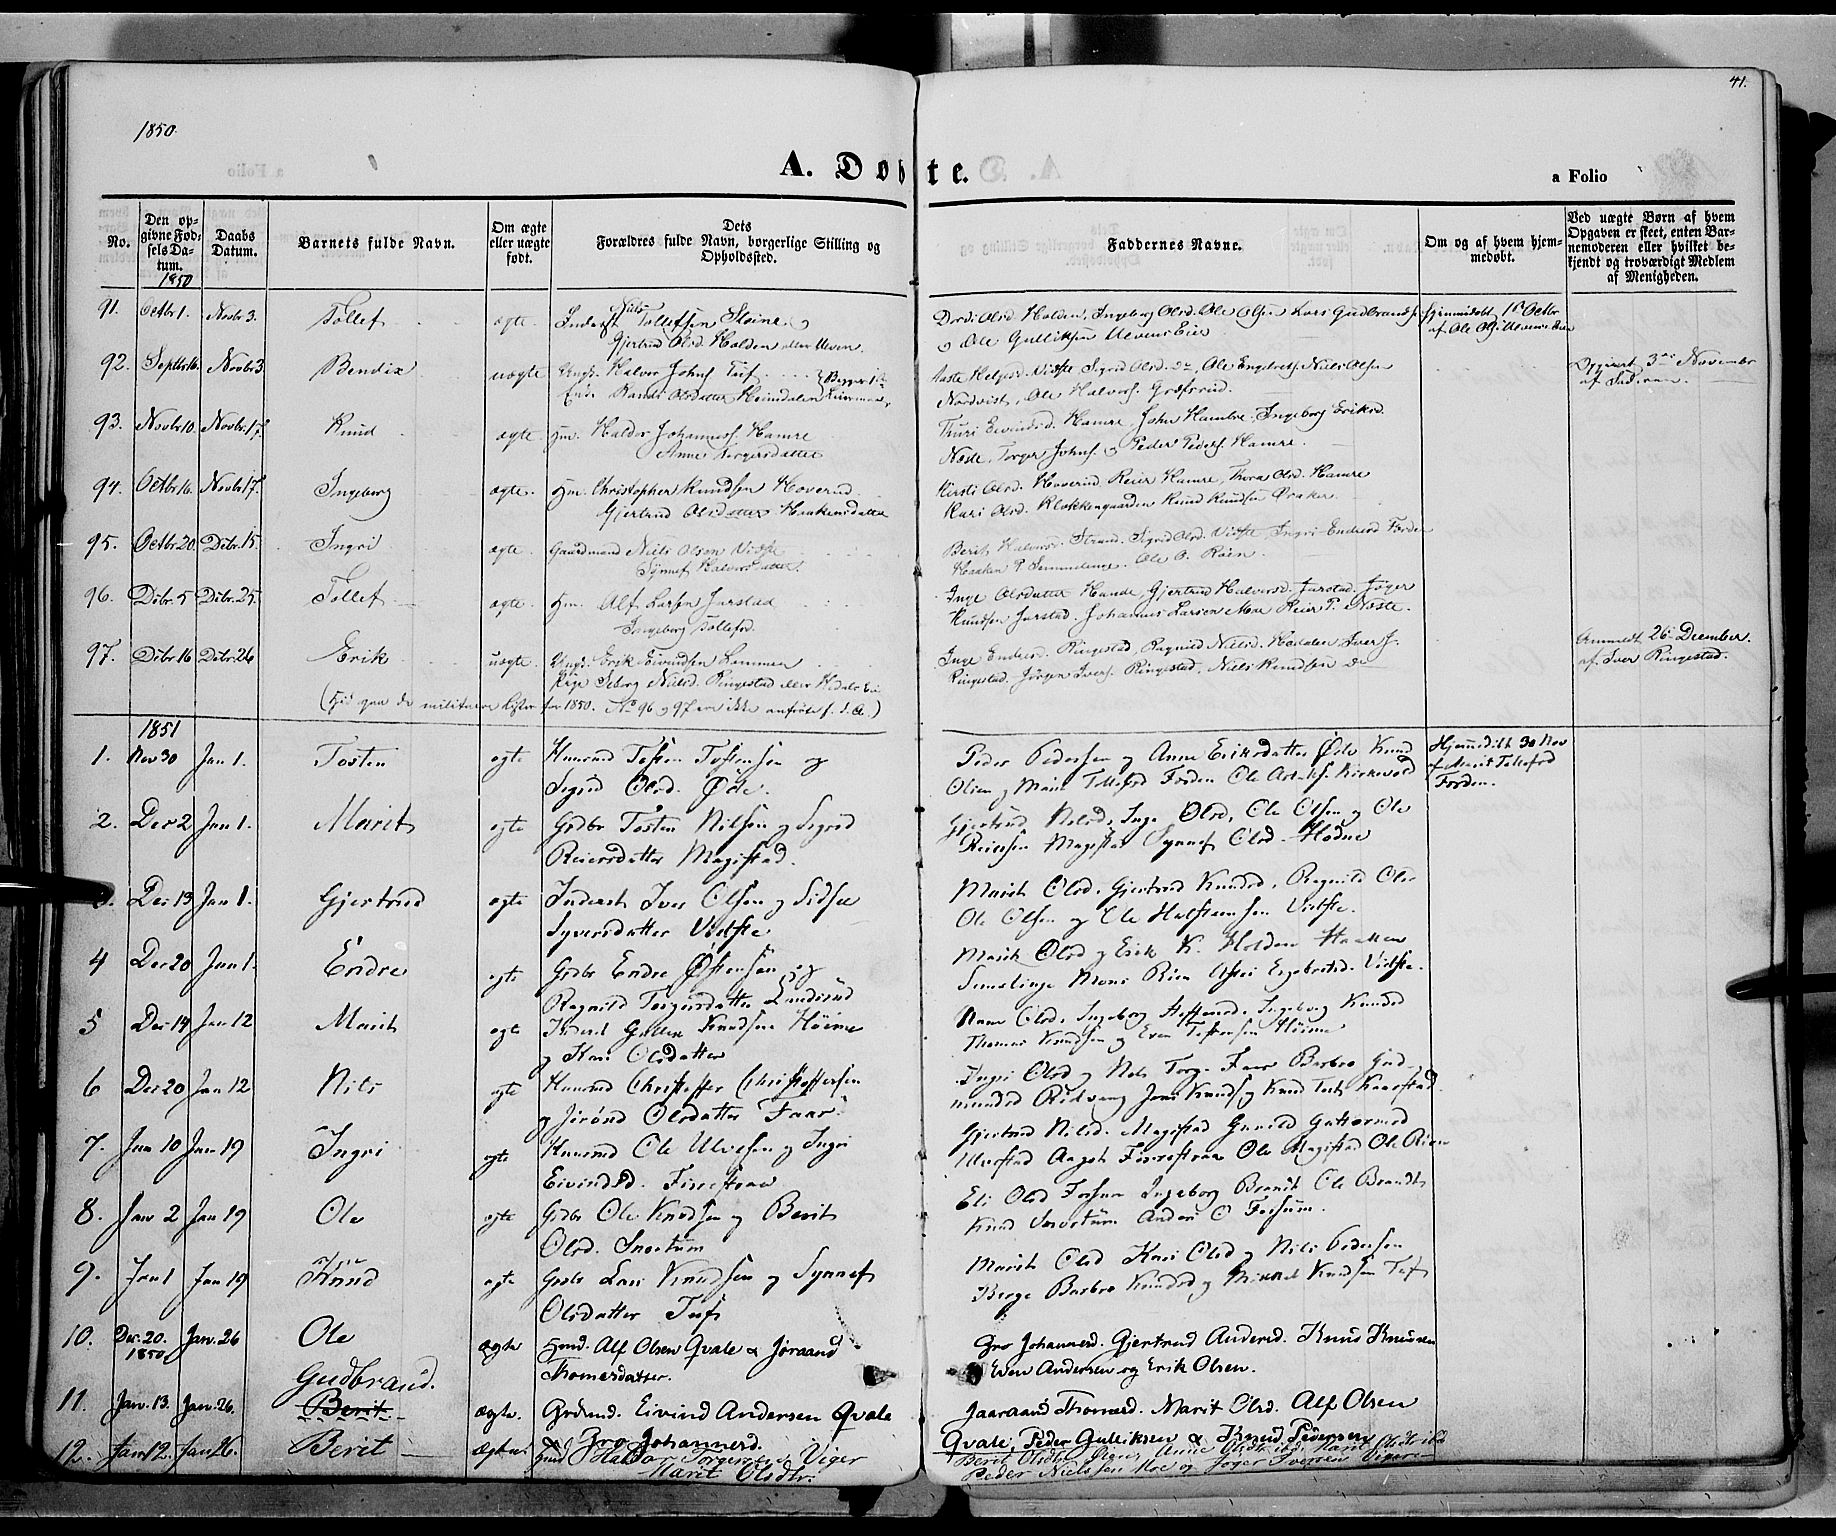 1850.
41.
A. Døbte.
a Folio
No.
Den opgivne Fødsels Datum.
Daabs Datum.
Barnets fulde Navn.
Om ægte eller uægte født.
Dets Forældres fulde Navn, borgerlige Stilling og Opholdssted.
Faddernes Navne.
Om og af hvem hjemmedøbt.
Ved uægte Børn af hvem Opgaven er skeet, enten Barnemoderen eller hvilket bekjendt og troværdigt Medlem af Menigheden.
1850
91. Octbr 1. Novbr 3. Tollef ægte. Inderst Nils Tollefsen Steine og
Gjertrud Olsd. Holden eller Ulven.
Dordi Olsd. Holden, Ingeborg Olsd. Ole Olsen Lars Gudbrands.
og Ole Gulliksen Ulvens Eie
Hjemmedøbt 1st Octbr
af Ole
92. Septbr 16. Novbr 3 Bendix uægte Ungk. Halvor Johns. Tuf
Randi Olsdatter Heimdalen
Aaste Helgesd. Vidste Sigrid Olsd. Do, Ole Engebrets. Niels Olsen
Nordvist, Ole Halvors. Græfsrud.
Opgivet 3die November
af Faderen.
93. Novbr 10. Novbr 17. Knud ægte. Hm. Haldor Johanness. Hamre
Anne Torgersdatter
Thuri Eivindsd. Hamre, John Hambre, Ingeborg Eriksd.
Næste, Torger Johns. og Peder Peders. Hamre.
94. Octbr 16. Novbr 17. Ingeborg ægte. Hm. Christopher Knudsen Hoverud
Gjertrud Olsdatter Haakensdatter
Kirsti Olsd. Hoverud Reier Hamre, Thora Olsd. Hamre
Kari Olsd. Klokkergaarden Knud Knudsen Øraker.
95. Octbr 20. Debr. 15. Ingri ægte Gaardmand Niels Olsen Vidste
Synnef Halvorsdatter.
Berit Halvorsd. Strand. Sigrid Olsd. Vidste, Ingri Endresd Forden
Haaken P. Semmelenge. Ole O. Røen.
96. Debr. 5 Debr. 25. Tollef ægte. Hm. Alf Larsen Jarstad
Ingeborg Tollefsd.
Inge Olsdatter Hande, Gjertrud Halvorsd. Jarstad. Jøger
Knudsen Jarstad. Johannes Larsen Moe Reier P. Næste.
97. Debr 16 Debr. 26 Erik uægte. Ungk. Erik Eivindsen Lommen
Pige Siborg Nielsd. Ringestad eller Hedals Eie
Inge Endresd. Ringestad, Ragnild Nielsd. Hedalen Ivers.
Ringestad. Jørgen Ivers. Ringestad, Niels Knudsen Do
Anmeldt 26 December.
af Iver Ringestad.
(Hid gaa de militaire Lister for 1850. No 96 og 97 ere ikke anførte f. d. A.)
1851
1. Nov 30 Jan 1. Tosten ægte Huusmd Tosten Tostensen og
Sigrid Olsd. Øde.
Peder Pedersen og Anne Eriksdatter Øde Knud
Olsen og Marit Tollefsd Forden Ole Kirkevold
Hjemmedøbt 30 Nov
af Marit Tollefsd
Forden.
2. Dec 2 Jan 1. Marit ægte Grdbr Tosten Nilsen og Sigrid
Reiersdatter Magistad.
Gjertrud Nilsd, Inge Olsd, Ole Olsen og Ole
Reiersen Magistad Synnef Olsd. Hodne
3. Dec 13 Jan 1. Gjertrud ægte Inderst Iver Olsen og Sidsee
Syversdatter Vidste
Marit Olsd. Gjertrud Knudsd. Ragnild Ols
Ole Olsen og Ole Halstensen Vidste.
4 Dec 20 Jan 1. Endre ægte Grdbr Endre Østensen og
Ragnild Torgersdatter Lundsrud
Marit Olsd og Erik K. Holden Haaken
Semelinge Moni Røen Engebretsd. Vidste.
5 Dec 14 Jan 12 Marit ægte Inderst Gullik Knudsen Høime
og Kari Olsdatter
Olsd. Ingeborg Steffensd. Ingeborg Knudsd
Thomas Knudsen og Even Tostensen Høime
6 Dec 20 Jan 12 Nils ægte Huusmd Christoffer Christoffersen
og Jørønd Olsdatter Faar.
Ingri Olsd og Nils Torg. Faar Barbro Gud-
mundsd Rudvang Jens Knuds og Knud
7. Jan 10 Jan 19 Ingri ægte Huusmd Ole Ulvesen og Ingri
Eivindsd.
Gjertrud Nilsd. Magistad Gunild Guttormsd
Ole Magistad Ole Røen
8. Jan 2 Jan 19 Ole ægte Grdbr Ole Knudsen og Berit
Olsd. Snortum
Eli Olsd Fosum Ingeborg Brandt Ole Brandt
Knud Snortum Anders O Fossum.
9. Jan 1 Jan 19 Knud ægte Grdbr Lars Knudsen og Synnef
Olsdatter Tuf
Marit Olsd Kari Olsd og Nils Pedersen
Berge Barbro Knudsd og Mikkel Knudsen Tuf
10. Dec. 20. 1850 Jan. 26 Ole ægte Huusmd. Alf Olsen Qvale & Jøraand
Thomesdatter.
Gro Johannesd. Gjertrud Andersd. Knud Knudsen
Even Andersen og Erik Olsen.
11. Jan. 13. Jan. 26. Gudbrand. Berit ægte. Grdmd. Eivind Andersen Qvale
Gro Johannesd.
Jaaraand Thomesd. Marit Olsd. Alf Olsen
Qvale, Peder Gulliksen & Knud Pedersen
12. Jan 12. Jan 26. Berit ægte Haldor Torgersen Viger
Marit Olsdtr.
Berit Olsdtr Viger, Anne Olsdtr Marit Olsdtr
Peder Nielssen Moe og Jøger Iversen Viger